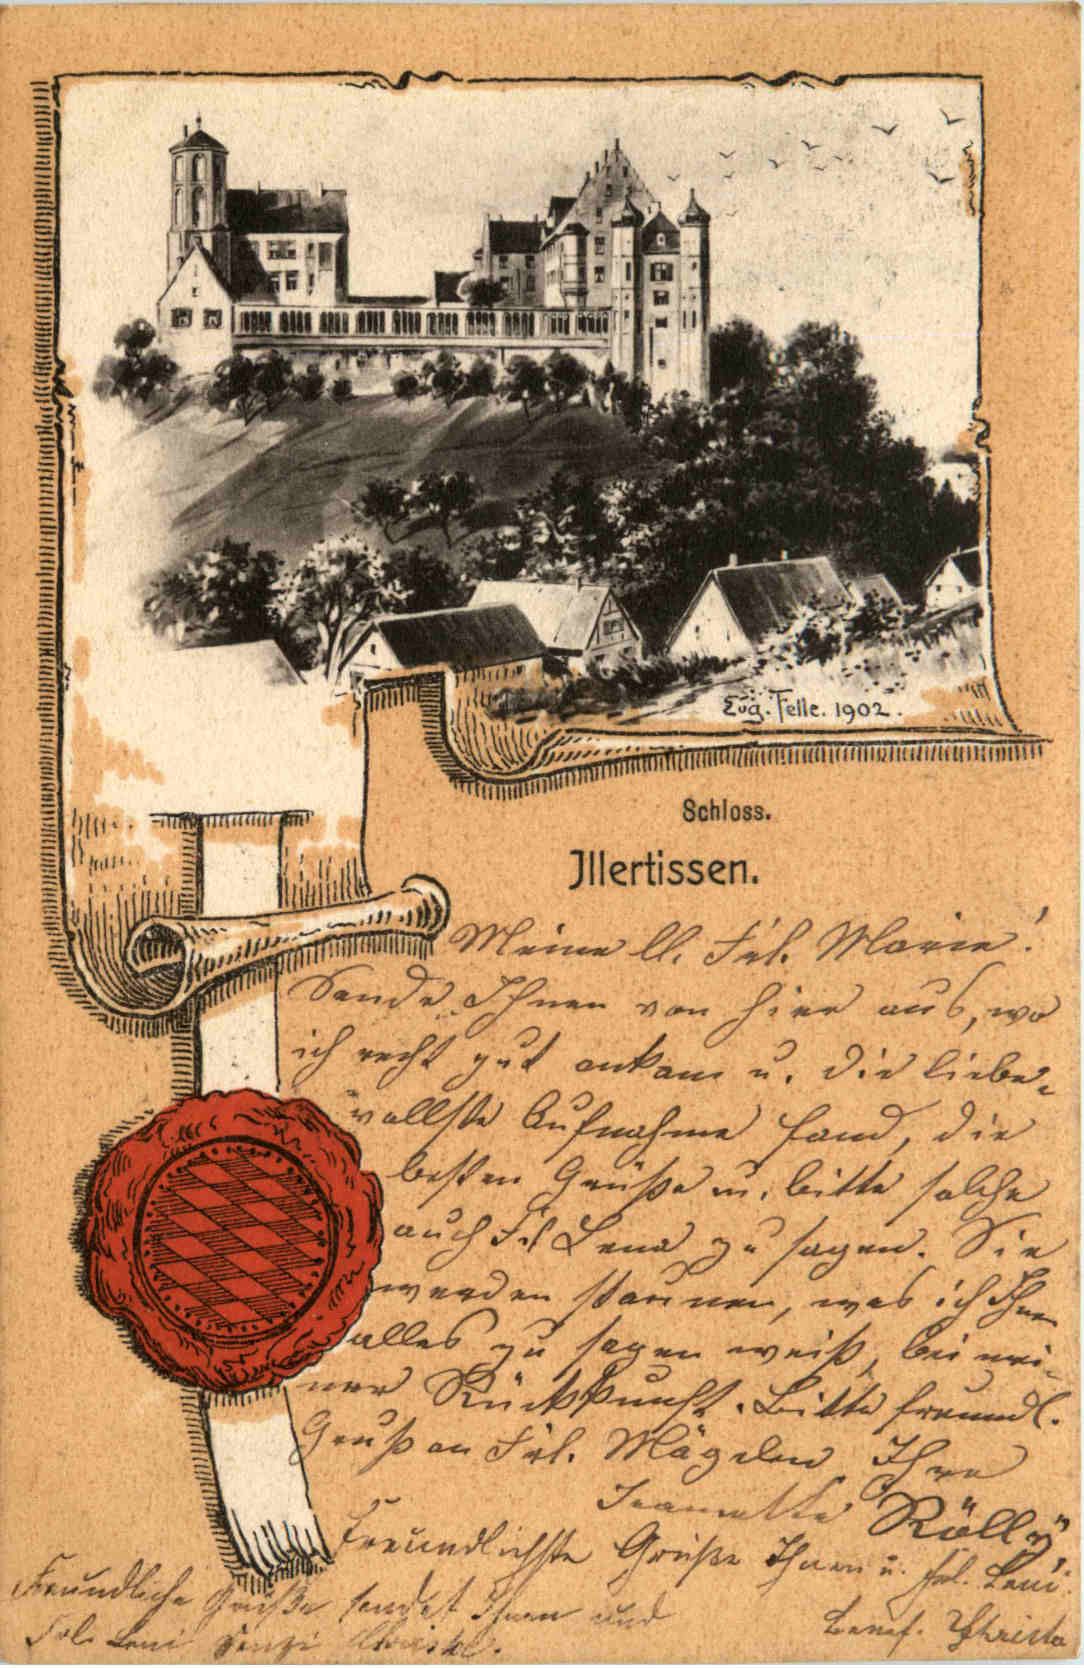 Eug. Felle. 1902.
Schloss.
Illertissen.
Meine ll. Frl. Marie!
Sende Ihnen von hier aus, wo
ich recht gut ankam u. die liebe-
vollste Aufnahme fand, die
besten Grüße u. bitte solche
auch Frl Lena zu sagen. Sie
werden staunen, was ich Ihnen
alles zu sagen weiß, bei mei-
ner Rückkunft. Bitte freundl.
Gruß an Frl. Ihre
Röll
Freundlichste Grüße Ihnen u. Frl. Leni
Benef.
Freundliche Grüße sendet Ihnen und
Frl. Leni Senzi